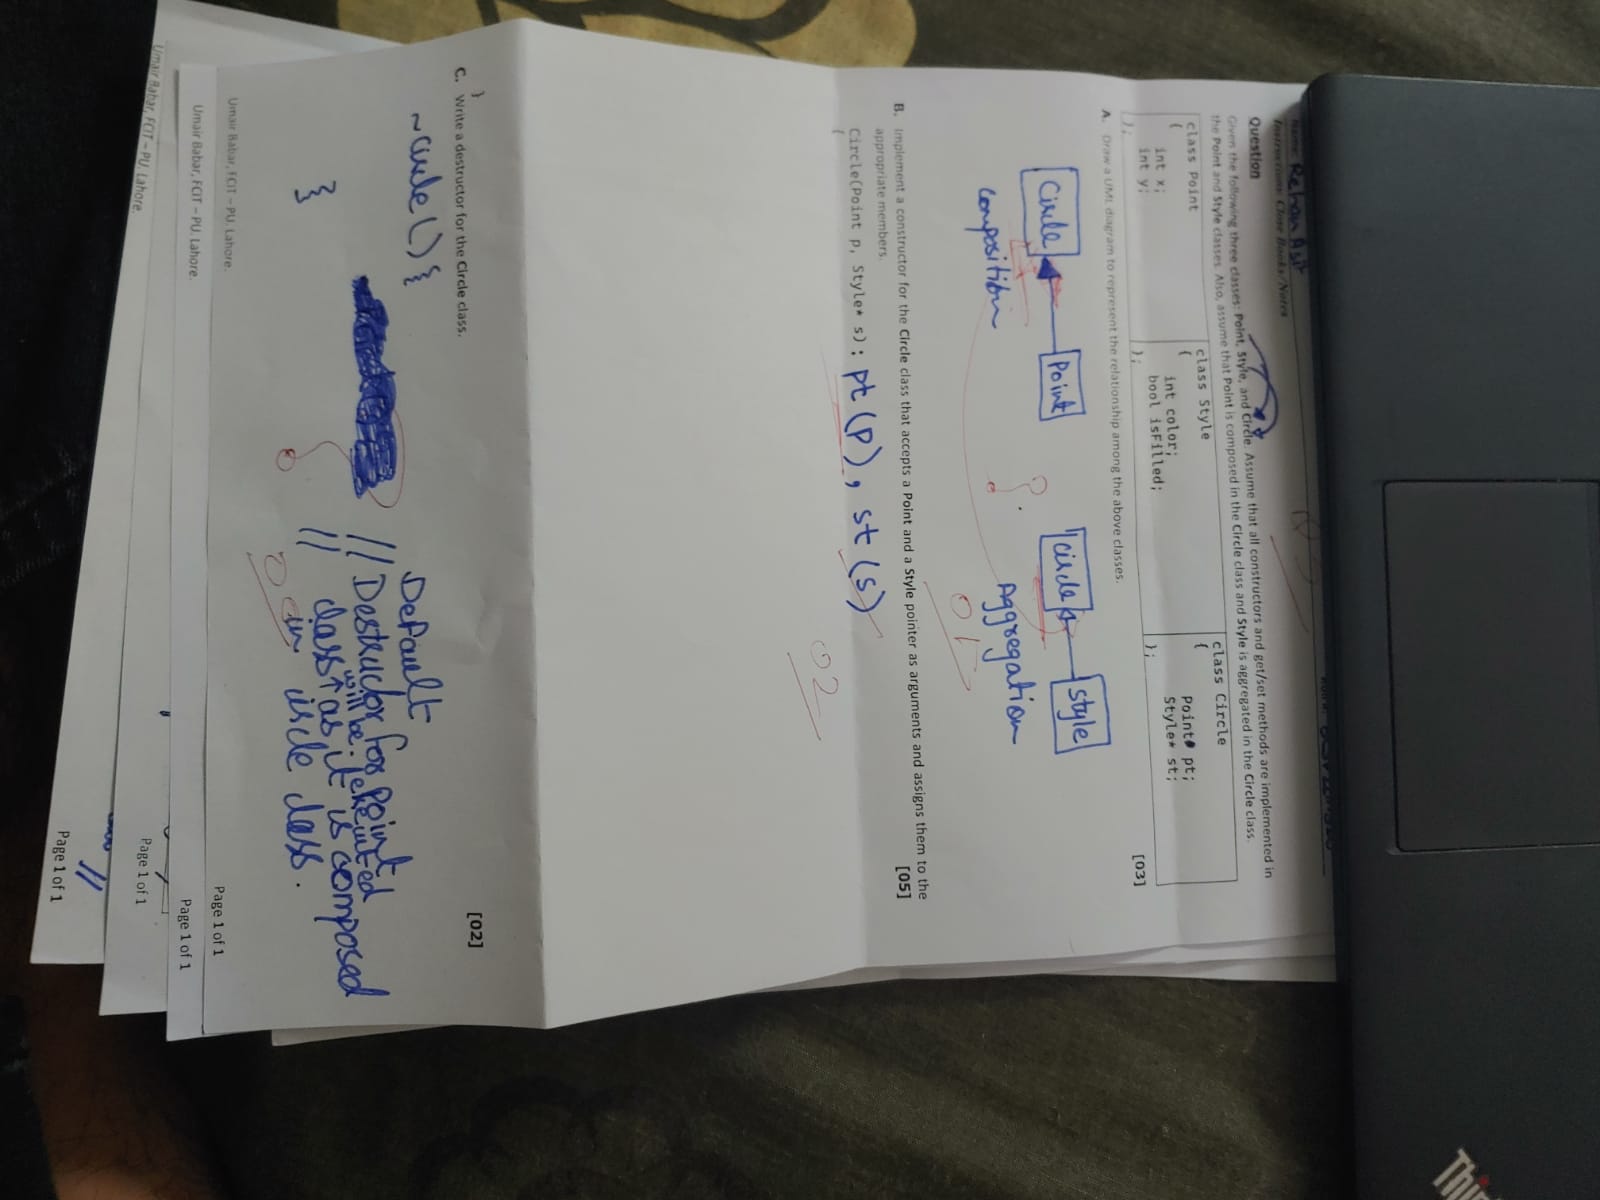 Name: Rehan Asif
Instructions: Close Books/Notes
Question
Given the following three classes: Point, Style, and Circle. Assume that all constructors and get/set methods are implemented in
the Point and Style classes. Also, assume that Point is composed in the Circle class and Style is aggregated in the Circle class.
class Point
{
int x;
int y;
};
class Style
{
int color;
bool isFilled;
};
class Circle
{
Point pt;
Style* st;
};
A. Draw a UML diagram to represent the relationship among the above classes.
[03]
Circle
Point
composition
circle
style
Aggregation
?
01
B. Implement a constructor for the Circle class that accepts a Point and a Style pointer as arguments and assigns them to the
appropriate members.
[05]
Circle(Point p, Style* s) : pt (p) , st (s)
{
02
}
C. Write a destructor for the Circle class.
[02]
~circle () {
Default
// Destructor for point
will be executed
// class as it is composed
in circle class.
}
Umair Babar, FCIT – PU. Lahore.
Page 1 of 1
Umair Babar, FCIT – PU. Lahore.
Page 1 of 1
Page 1 of 1
Umair Babar, FCIT – PU. Lahore.
Page 1 of 1